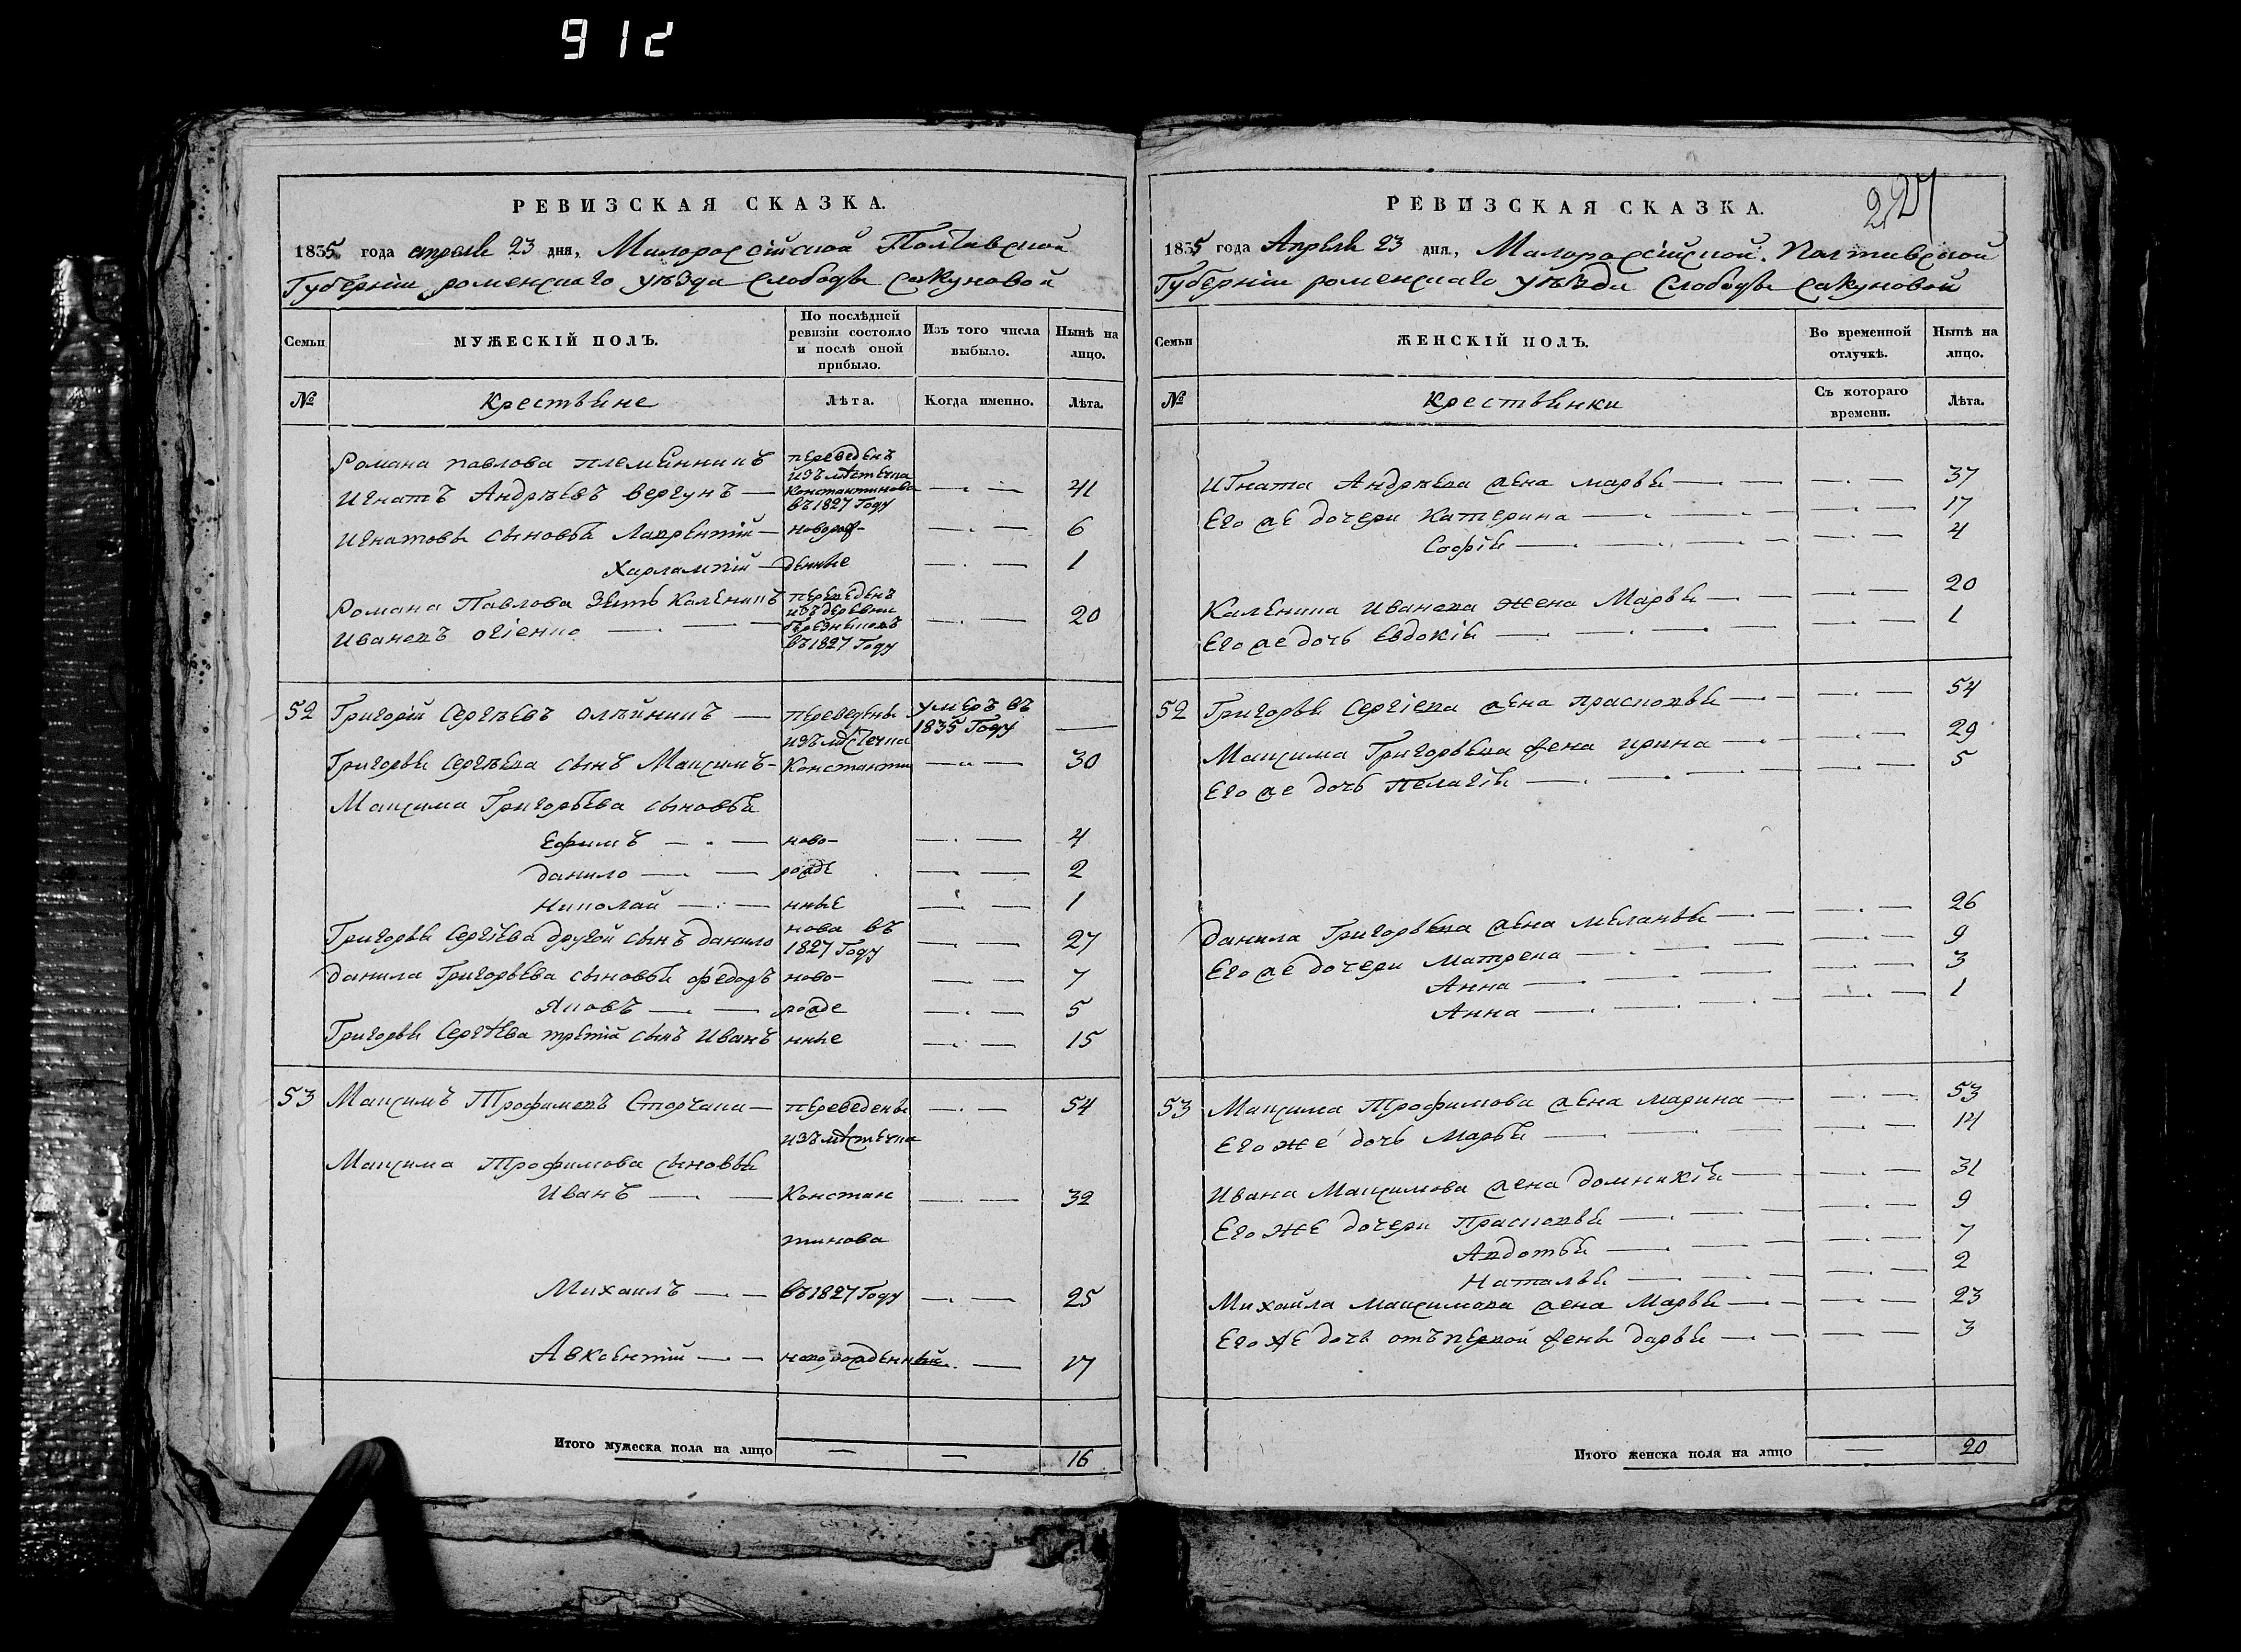 912
РЕВИЗСКАЯ СКАЗКА.
1835 года апреля 23 дня, Малороссійской Полтавской
Губерніи роменскаго уѣзда слободы сакуновой
Семьи
МУЖЕСКІЙ ПОЛЪ.
По послѣдней ревизіи состояло и послѣ оной прибыло.
Изъ того числа выбыло.
Нынѣ на лицо.
№
Крестьяне
Лѣта.
Когда именно.
Лѣта.
Романа павлова племянникъ переведенъ
изъ мѣстечка
Игнатъ Андрѣевъ вергунъ — Константинова — . — 41
въ 1827 Году
Игнатовы сыновья Лаврентій — новорож- — . — 6
Харлампій — денные — . — 1
Романа Павлова Зять Каленикъ переведенъ
изъ деревни
Иванокъ огіенко — . — — — . — 20
въ 1827 Году
52 Григорій Сергѣевъ олѣйникъ — переведены умеръ въ
1835 Году —
изъ мѣстечка
Григорья Сергѣева сынъ Максимъ - Константи — „ — 30
Максима Григорьева сыновья
Ефимъ — . — ново- — . — 4
данило — . — рожде — . — 2
Николай — . — нные — . — 1
Григорья Сергіева другой сынъ данило нова въ
1827 Году — . — 27
данила Григорьева сыновья федоръ ново- — . — 7
Яковъ — . — рожде — . — 5
Григорья Сергѣева третій сынъ Иванъ нные — . — 15
53 Максимъ Трофимовъ Сторчака — переведены — . — 54
изъ мѣстечка
Максима Трофимова сыновья
Иванъ — . — Констан — . — 32
тинова
Михаилъ — . — въ 1827 Году — . — 25
Авксентій — . — новорожденный . — 17
Итого мужеска пола на лицо — — 16
227
РЕВИЗСКАЯ СКАЗКА.
1835 года Апреля 23 дня, Малороссійской Полтавской
Губерніи роменскаго уѣзда Слободы сакуновой
Семьи
ЖЕНСКІЙ ПОЛЪ.
Во временной отлучкѣ.
Нынѣ на лицо.
№
Крестьянки
Съ котораго времени.
Лѣта.
Игната Андрѣева жена марья — . — — . — 37
Его же дочери Катерина — . — — . — 17
Софія — . — — . — 4
Каленика Иванова жена Марья — . — — . — 20
Его же дочь Евдокія — . — — . — 1
52 Григорья Сергіева жена прасковья — . — — . — 54
Максима Григорьева жена ирина — . — — . — 29
Его же дочь Пелагія — . — — . — 5
Данила Григорьева жена меланья — . — — . — 26
Его же дочери матрена — . — — . — 9
Анна — . — — . — 3
Анна — . — — . — 1
53 Максима Трофимова жена марина — — . — 53
Его же дочь Марья — . — — . — 14
Ивана Максимова жена домникія — — . — 31
Его же дочери Прасковья — . — — . — 9
Авдотья — . — — . — 7
Наталья — . — — . — 2
Михайла максимова жена Марья — . — — . — 23
Его же дочь отъ первой жены дарья — . — — — 3
Итого женска пола на лицо — 20